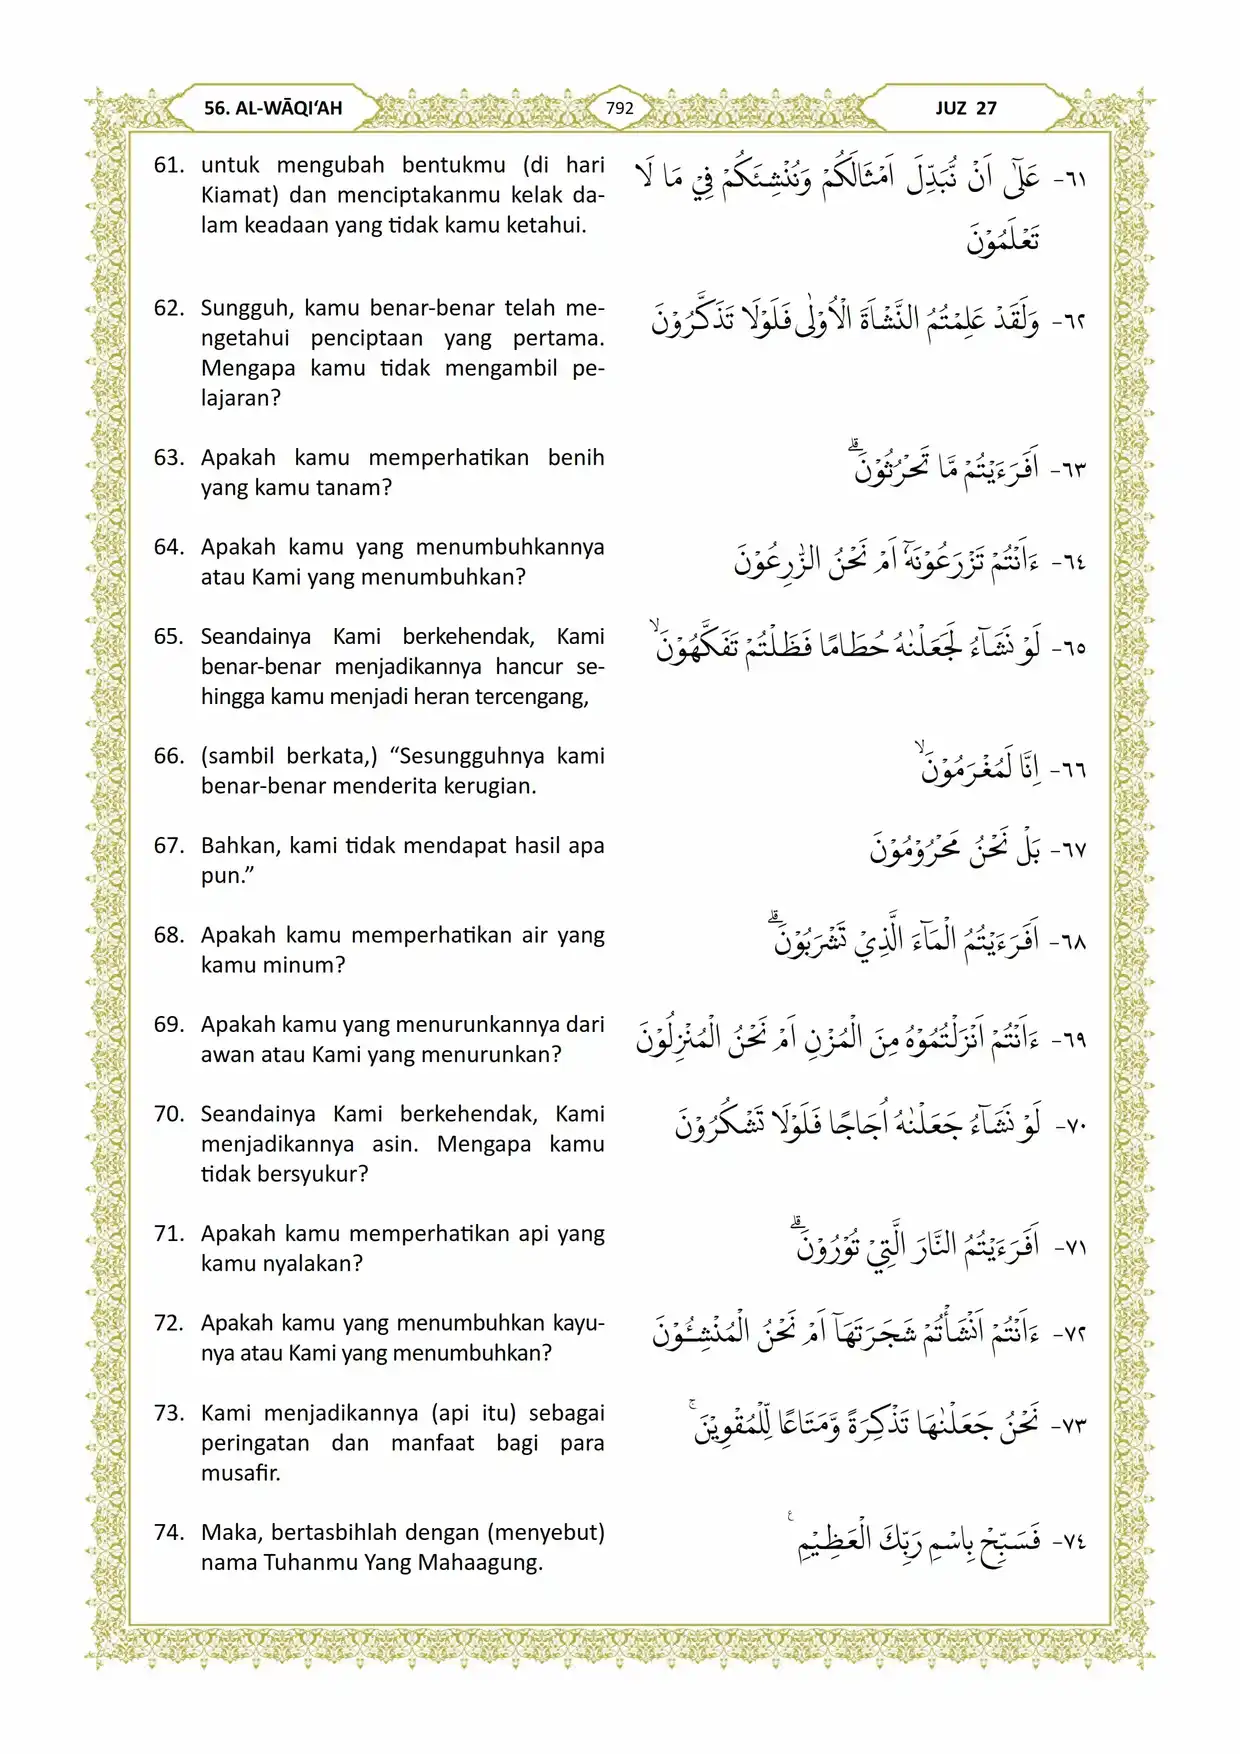 56. AL-WĀQI‘AH
792
JUZ 27
61. untuk mengubah bentukmu (di hari
Kiamat) dan menciptakanmu kelak da-
lam keadaan yang tidak kamu ketahui.
٦١- عَلٰٓى اَنْ نُّبَدِّلَ اَمْثَالَكُمْ وَنُنْشِئَكُمْ فِيْ مَا لَا
تَعْلَمُوْنَ
62. Sungguh, kamu benar-benar telah me-
ngetahui penciptaan yang pertama.
Mengapa kamu tidak mengambil pe-
lajaran?
٦٢- وَلَقَدْ عَلِمْتُمُ النَّشْاَةَ الْاُوْلٰى فَلَوْلَا تَذَكَّرُوْنَ
63. Apakah kamu memperhatikan benih
yang kamu tanam?
٦٣- اَفَرَءَيْتُمْ مَّا تَحْرُثُوْنَۗ
64. Apakah kamu yang menumbuhkannya
atau Kami yang menumbuhkan?
٦٤- ءَاَنْتُمْ تَزْرَعُوْنَهٗٓ اَمْ نَحْنُ الزّٰرِعُوْنَ
65. Seandainya Kami berkehendak, Kami
benar-benar menjadikannya hancur se-
hingga kamu menjadi heran tercengang,
٦٥- لَوْ نَشَاۤءُ لَجَعَلْنٰهُ حُطَامًا فَظَلْتُمْ تَفَكَّهُوْنَۙ
66. (sambil berkata,) “Sesungguhnya kami
benar-benar menderita kerugian.
٦٦- اِنَّا لَمُغْرَمُوْنَۙ
67. Bahkan, kami tidak mendapat hasil apa
pun.”
٦٧- بَلْ نَحْنُ مَحْرُوْمُوْنَ
68. Apakah kamu memperhatikan air yang
kamu minum?
٦٨- اَفَرَءَيْتُمُ الْمَاۤءَ الَّذِيْ تَشْرَبُوْنَۗ
69. Apakah kamu yang menurunkannya dari
awan atau Kami yang menurunkan?
٦٩- ءَاَنْتُمْ اَنْزَلْتُمُوْهُ مِنَ الْمُزْنِ اَمْ نَحْنُ الْمُنْزِلُوْنَ
70. Seandainya Kami berkehendak, Kami
menjadikannya asin. Mengapa kamu
tidak bersyukur?
٧٠- لَوْ نَشَاۤءُ جَعَلْنٰهُ اُجَاجًا فَلَوْلَا تَشْكُرُوْنَ
71. Apakah kamu memperhatikan api yang
kamu nyalakan?
٧١- اَفَرَءَيْتُمُ النَّارَ الَّتِيْ تُوْرُوْنَۗ
72. Apakah kamu yang menumbuhkan kayu-
nya atau Kami yang menumbuhkan?
٧٢- ءَاَنْتُمْ اَنْشَأْتُمْ شَجَرَتَهَآ اَمْ نَحْنُ الْمُنْشِـُٔوْنَ
73. Kami menjadikannya (api itu) sebagai
peringatan dan manfaat bagi para
musafir.
٧٣- نَحْنُ جَعَلْنٰهَا تَذْكِرَةً وَّمَتَاعًا لِّلْمُقْوِيْنَۚ
74. Maka, bertasbihlah dengan (menyebut)
nama Tuhanmu Yang Mahaagung.
٧٤- فَسَبِّحْ بِاسْمِ رَبِّكَ الْعَظِيْمِ ࣖ